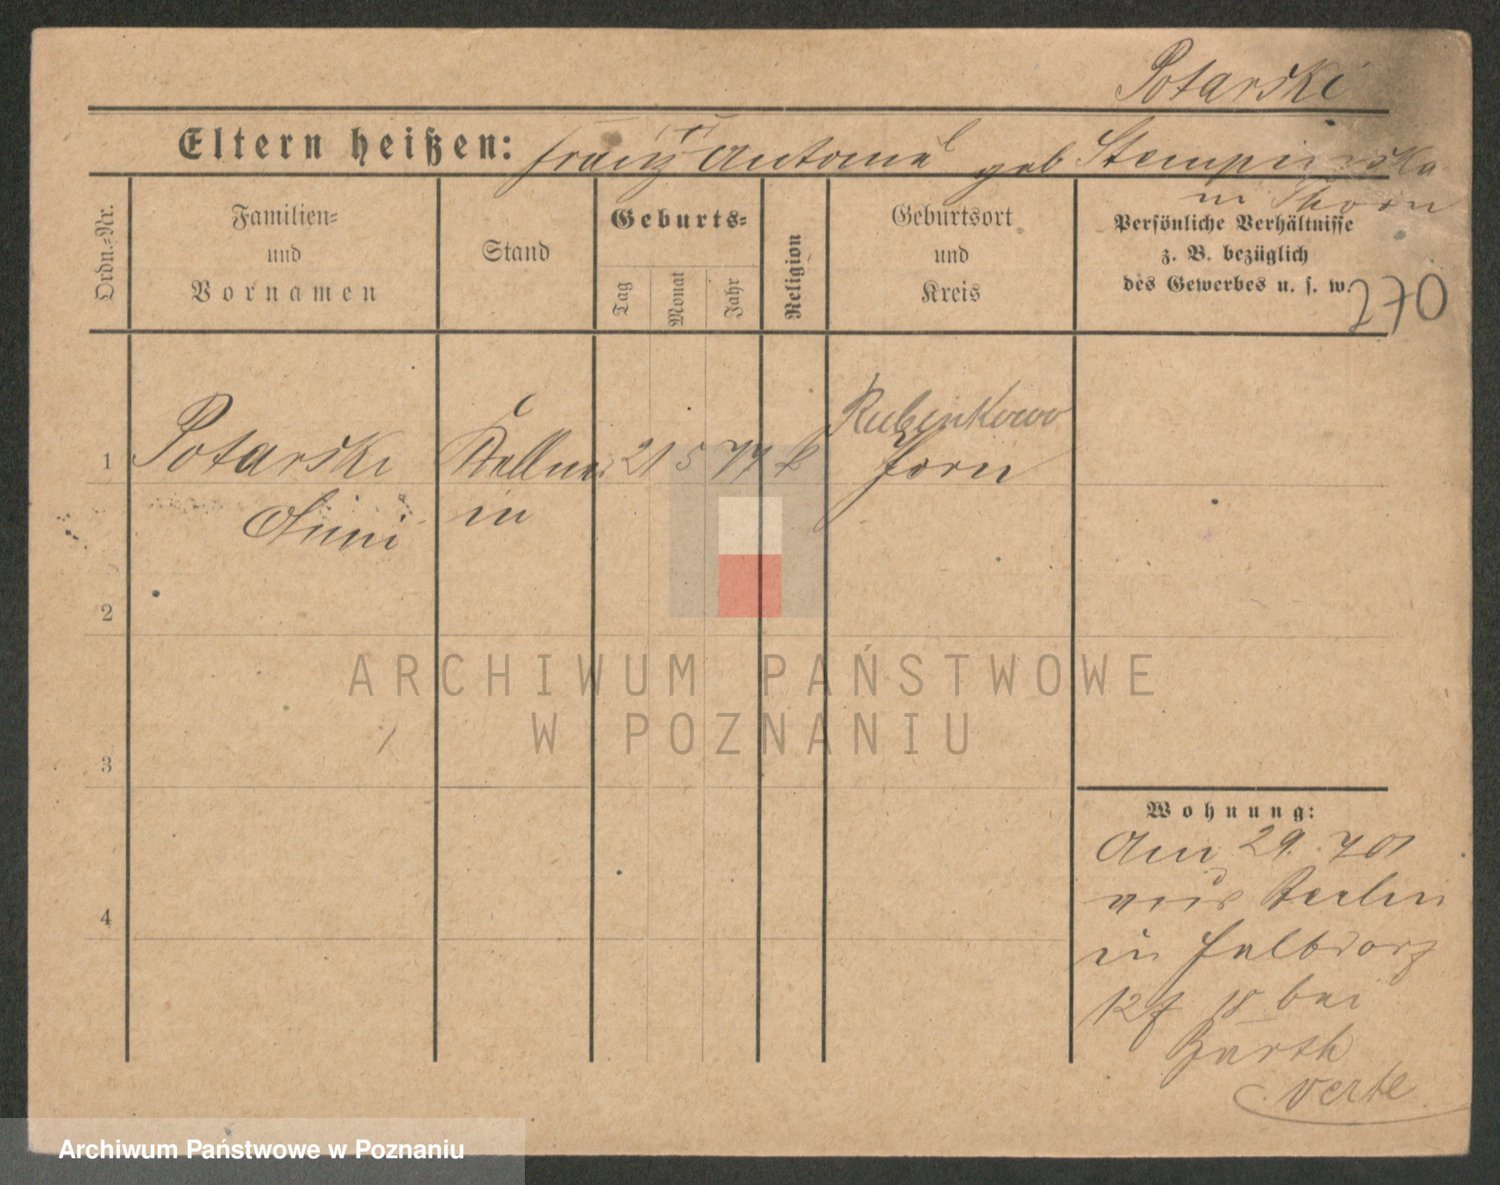 Potarski
Eltern heißen: Franz Antonie geb Stempinska
in Thorn
Ordn.=Nr.
Familien=
und
Vornamen
Stand
Geburts=
Tag
Monat
Jahr
Religion
Geburtsort
und
Kreis
Persönliche Verhältnisse
z. B. bezüglich
des Gewerbes u. s. w.
270
Rubinkowo
1 Potarski Kellner 21 5 77 k Torn
Anni in
2
3
4
Wohnung:
Am 29. 7 01
aus Berlin
in
12 18 bei
Barth
verte
Archiwum Państwowe
w Poznaniu
Archiwum Państwowe w Poznaniu